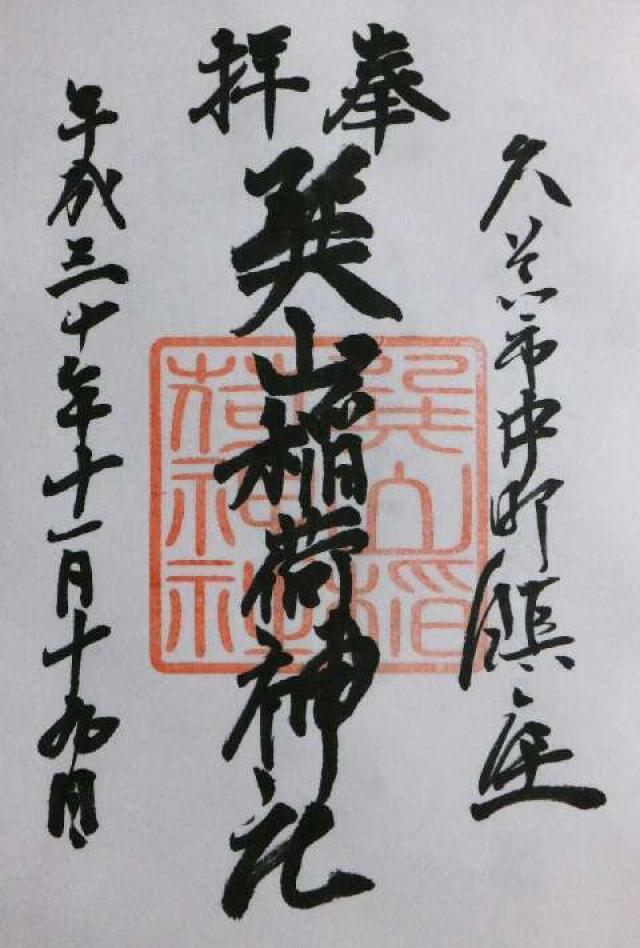 久慈市中町鎮座
奉拝
巽山稲荷神社
平成三十年十一月十九日
巽山稲
荷神社